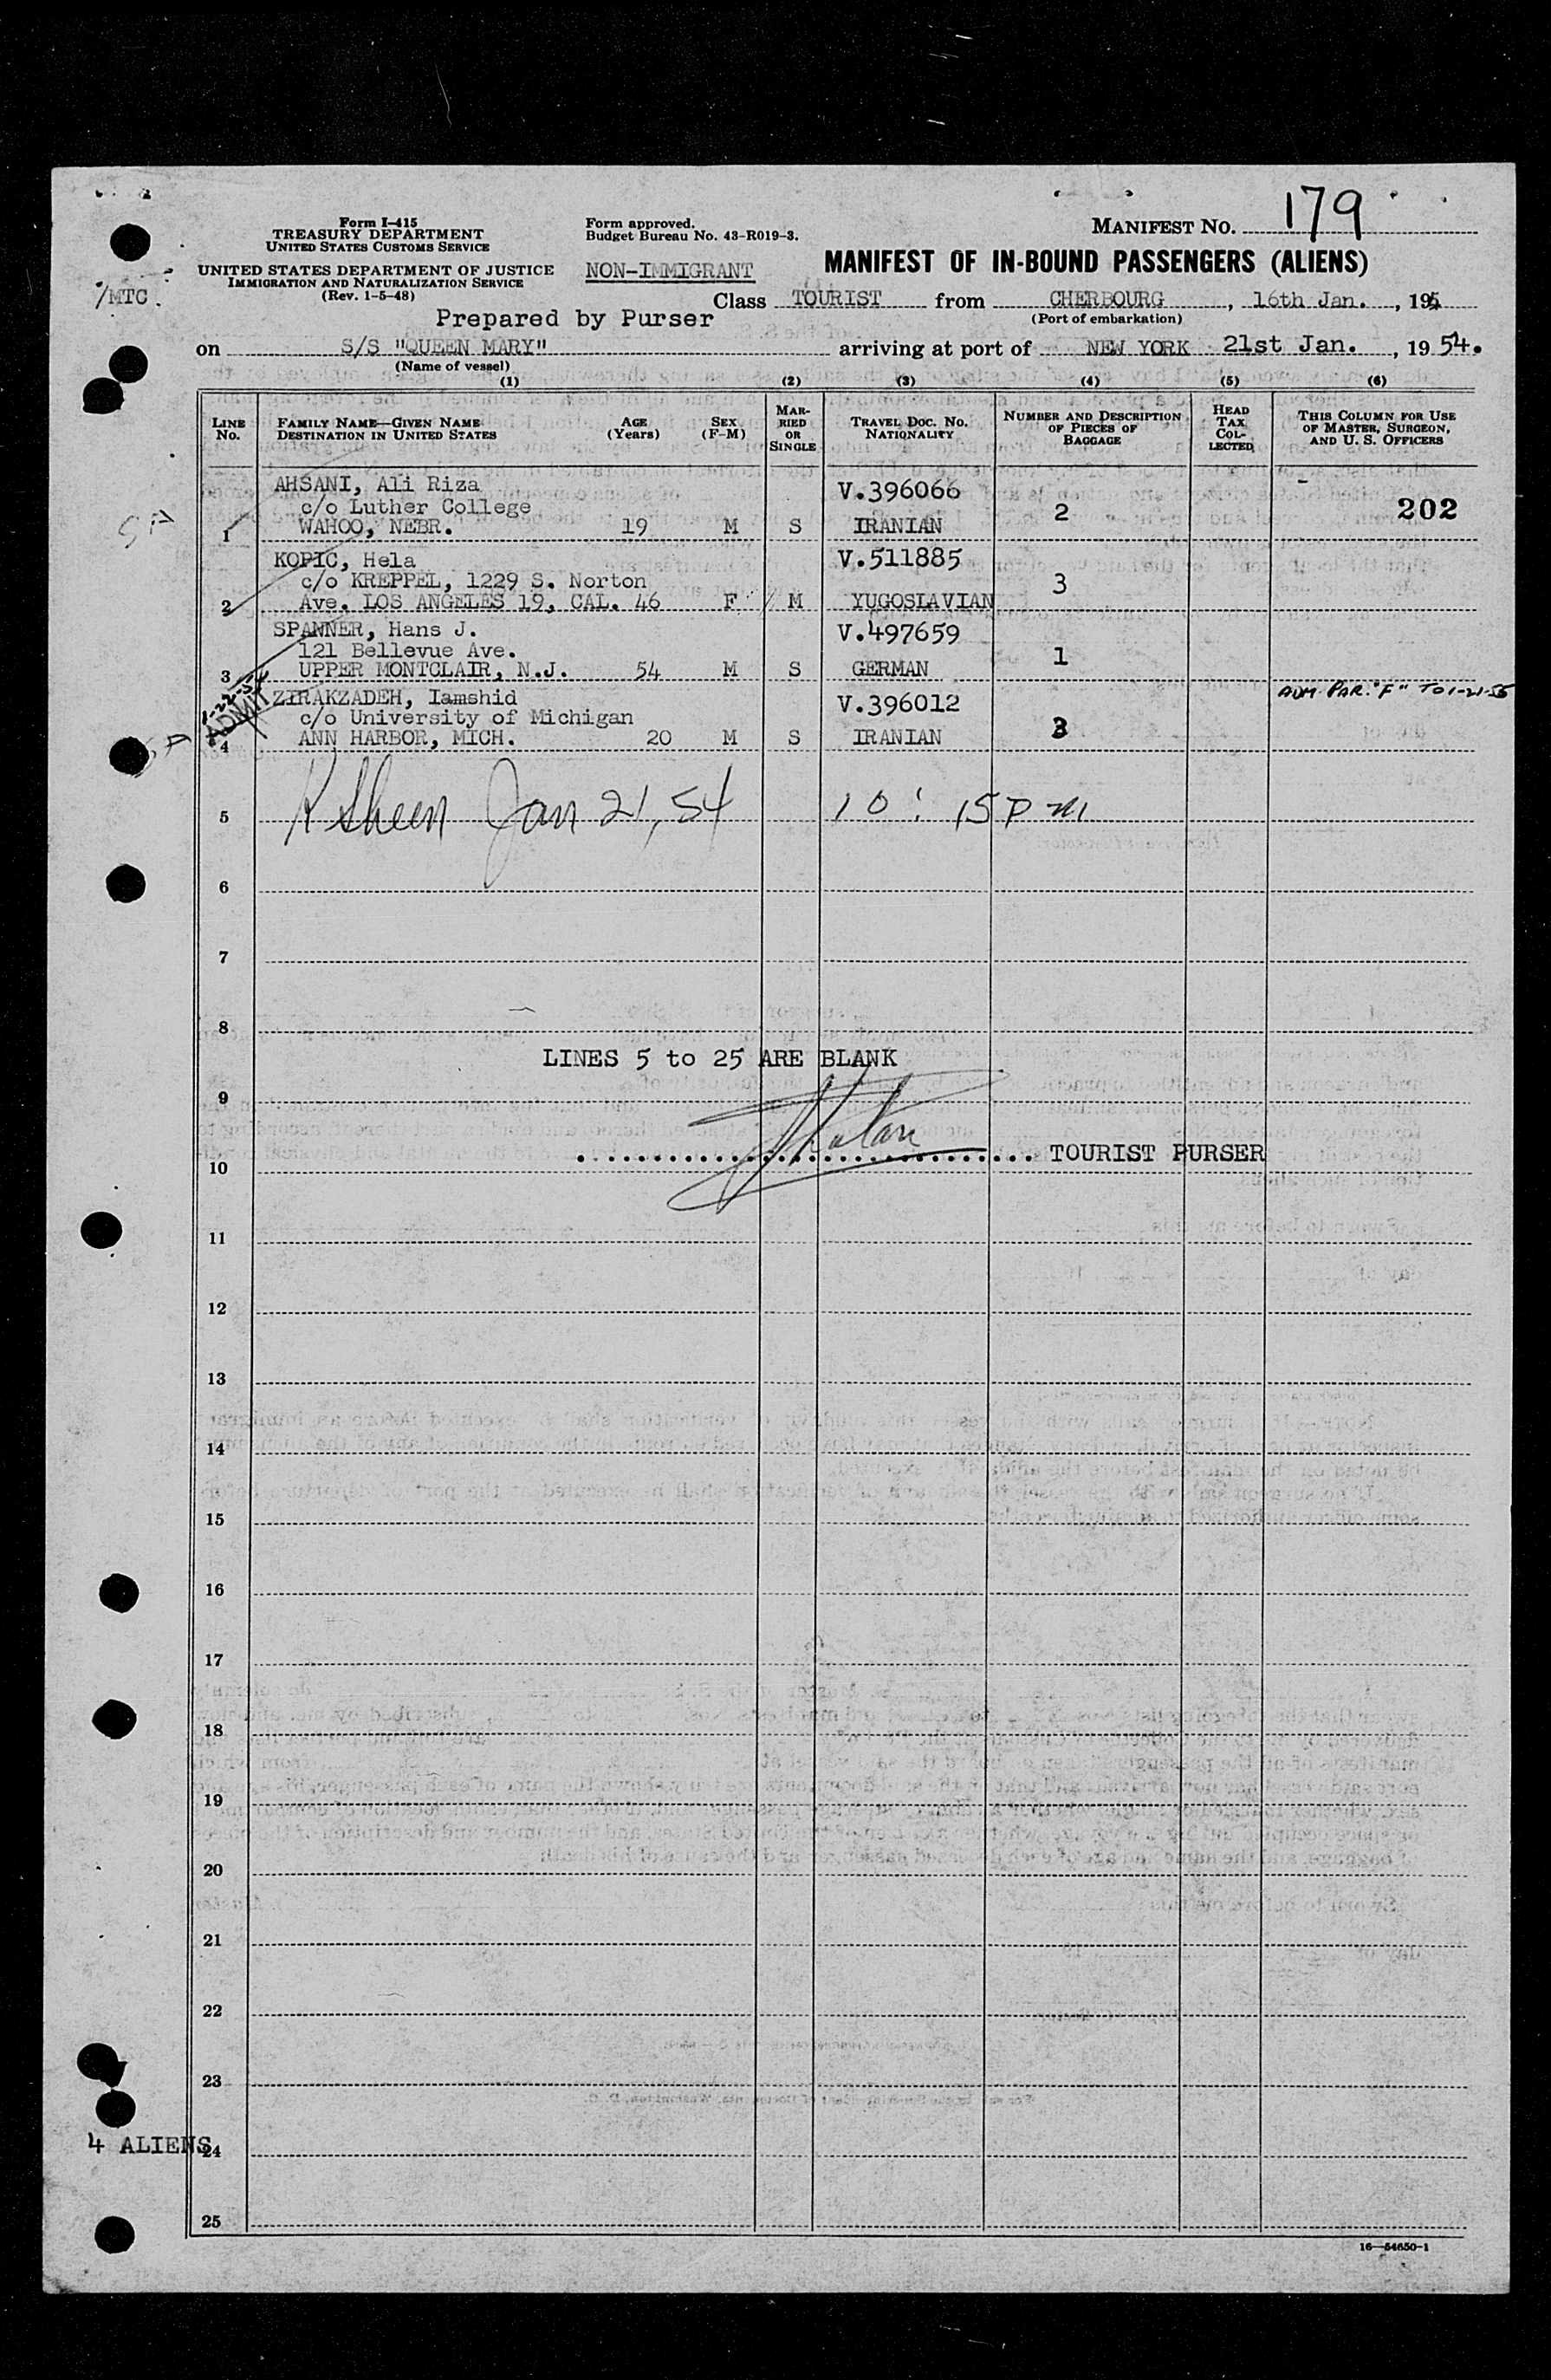 Form I-415
TREASURY DEPARTMENT
UNITED STATES CUSTOMS SERVICE
UNITED STATES DEPARTMENT OF JUSTICE
IMMIGRATION AND NATURALIZATION SERVICE
(Rev. 1-5-48)
Form approved.
Budget Bureau No. 43-R019-3.
MANIFEST NO. 179
NON-IMMIGRANT
MANIFEST OF IN-BOUND PASSENGERS (ALIENS)
/MTC.
Class TOURIST from CHERBOURG, 16th Jan., 195
(Port of embarkation)
Prepared by Purser
on S/S "QUEEN MARY" arriving at port of NEW YORK 21st Jan., 1954.
(Name of vessel)
(1) (2) (3) (4) (5) (6)
LINE No.
FAMILY NAME—GIVEN NAME
DESTINATION IN UNITED STATES
AGE (Years)
SEX (F-M)
MARRIED OR SINGLE
TRAVEL DOC. NO.
NATIONALITY
NUMBER AND DESCRIPTION OF PIECES OF BAGGAGE
HEAD TAX COLLECTED
THIS COLUMN FOR USE OF MASTER, SURGEON, AND U. S. OFFICERS
AHSANI, Ali Riza V.396066
c/o Luther College 2 202
1 WAHOO, NEBR. 19 M S IRANIAN
KOPIC, Hela V.511885
c/o KREPPEL, 1229 S. Norton 3
2 Ave. LOS ANGELES 19, CAL. 46 F M YUGOSLAVIAN
SPANNER, Hans J. V.497659
121 Bellevue Ave. 1
3 UPPER MONTCLAIR, N.J. 54 M S GERMAN
ZIRAKZADEH, Iamshid V.396012 ADM. PAR. "F" TO 1-21-55
c/o University of Michigan 3
4 ANN HARBOR, MICH. 20 M S IRANIAN
1-22-54
ADMIT
5 Sheen Jan 21, 54 10:15 pm
6
7
8
LINES 5 to 25 ARE BLANK
9
10 TOURIST PURSER
11
12
13
14
15
16
17
18
19
20
21
22
23
4 ALIENS
24
25
16—54650-1